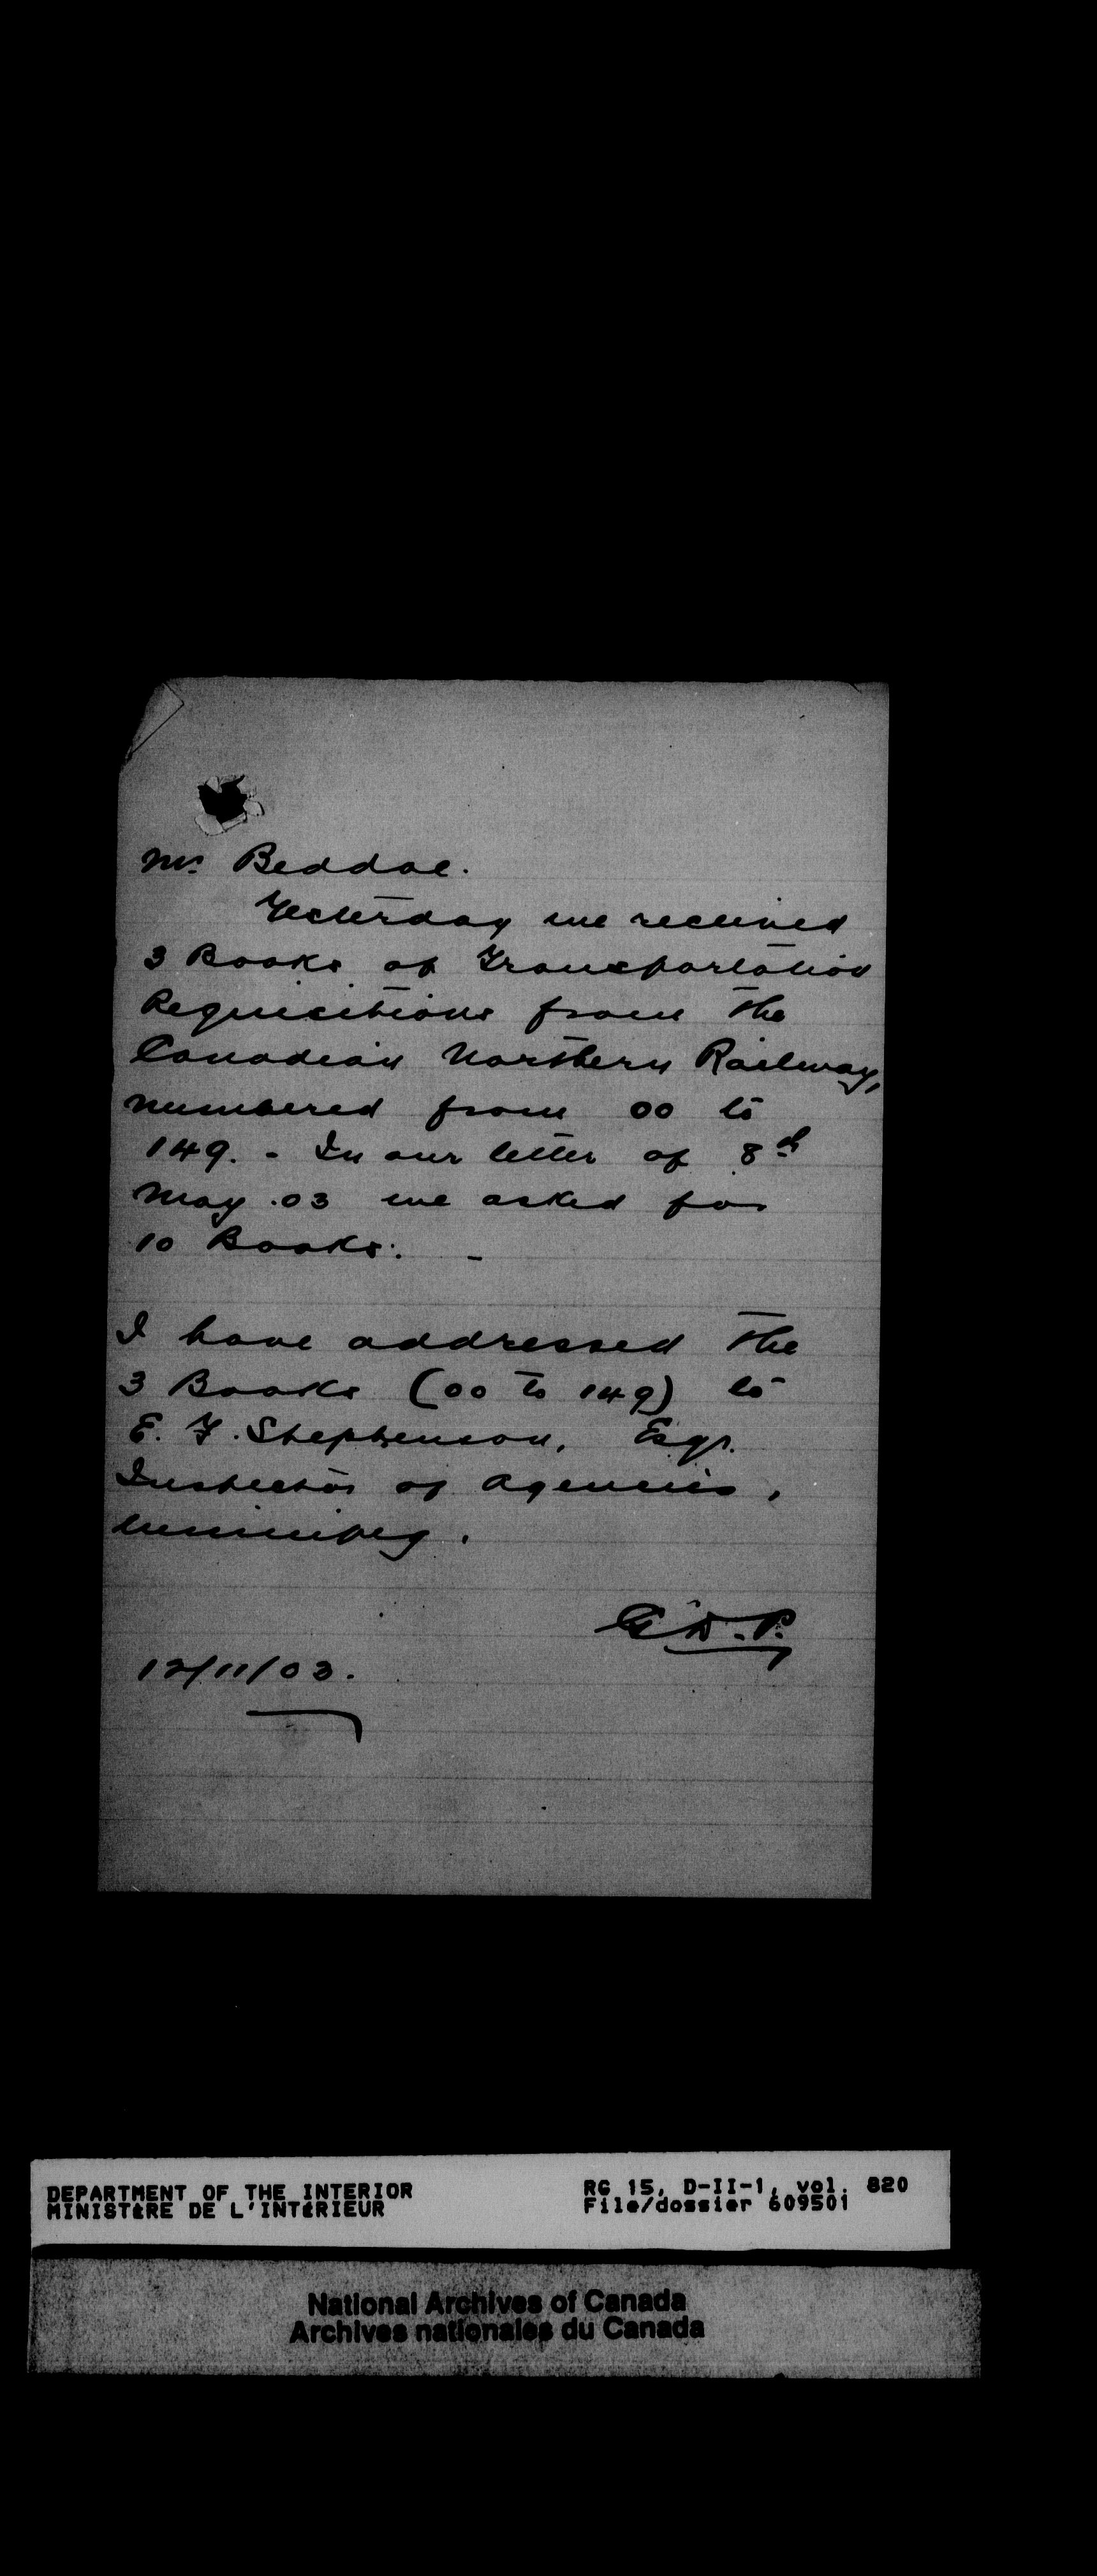 Mr. Beddoe.
Yesterday we received
3 Books of Transportation
Requisitions from the
Canadian Northern Railway,
numbered from 00 to
149. - In our letter of 8th
May .03 we asked for
10 Books. -
I have addressed the
3 Books (00 to 149) to
E. F. Stephenson, Esqr.
Inspector of Agencies,
Winnipeg.
G.D.P.
12/11/03.
DEPARTMENT OF THE INTERIOR
MINISTÈRE DE L'INTÉRIEUR
RG 15, D-II-1, vol. 820
File/dossier 609501
National Archives of Canada
Archives nationales du Canada